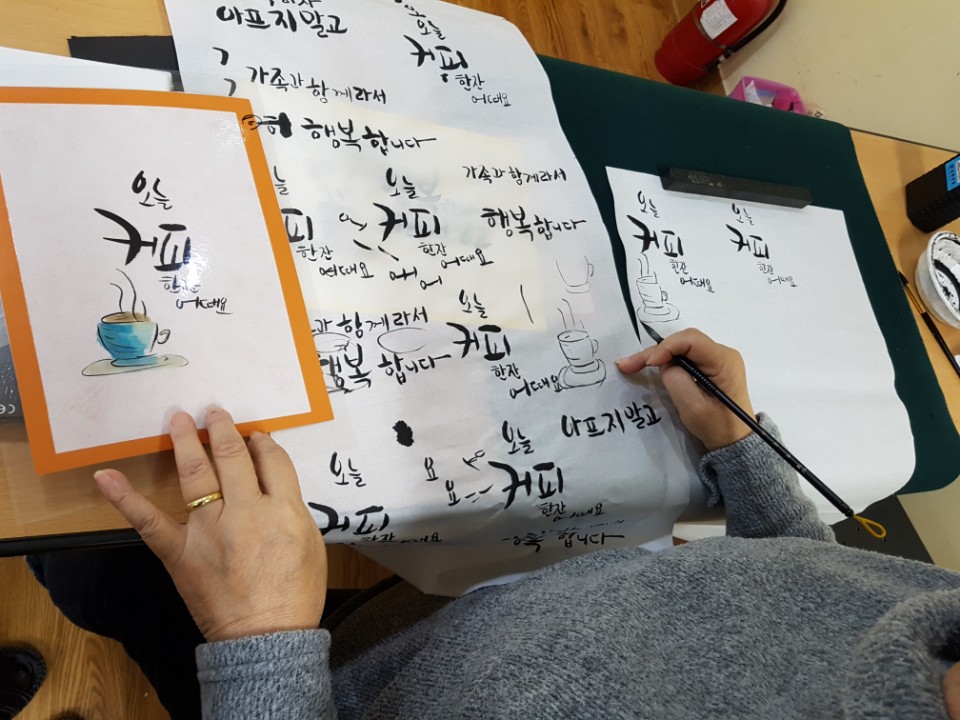 오늘
커피
한잔
어때요
아프지말고
가족과 함께라서
행복합니다
오늘
커피
한잔
어때요
오늘
커피
한잔
어때요
가족과 함께라서
행복합니다
피
한잔
어때요
어
어
과 함께라서
행복합니다
오늘
커피
한잔
어때요
아프지말고
오늘
커피
한잔
어때요
요
요
오늘
커피
한잔
어때요
합니다
오늘
커피
한잔
어때요
오늘
커피
한잔
어때요